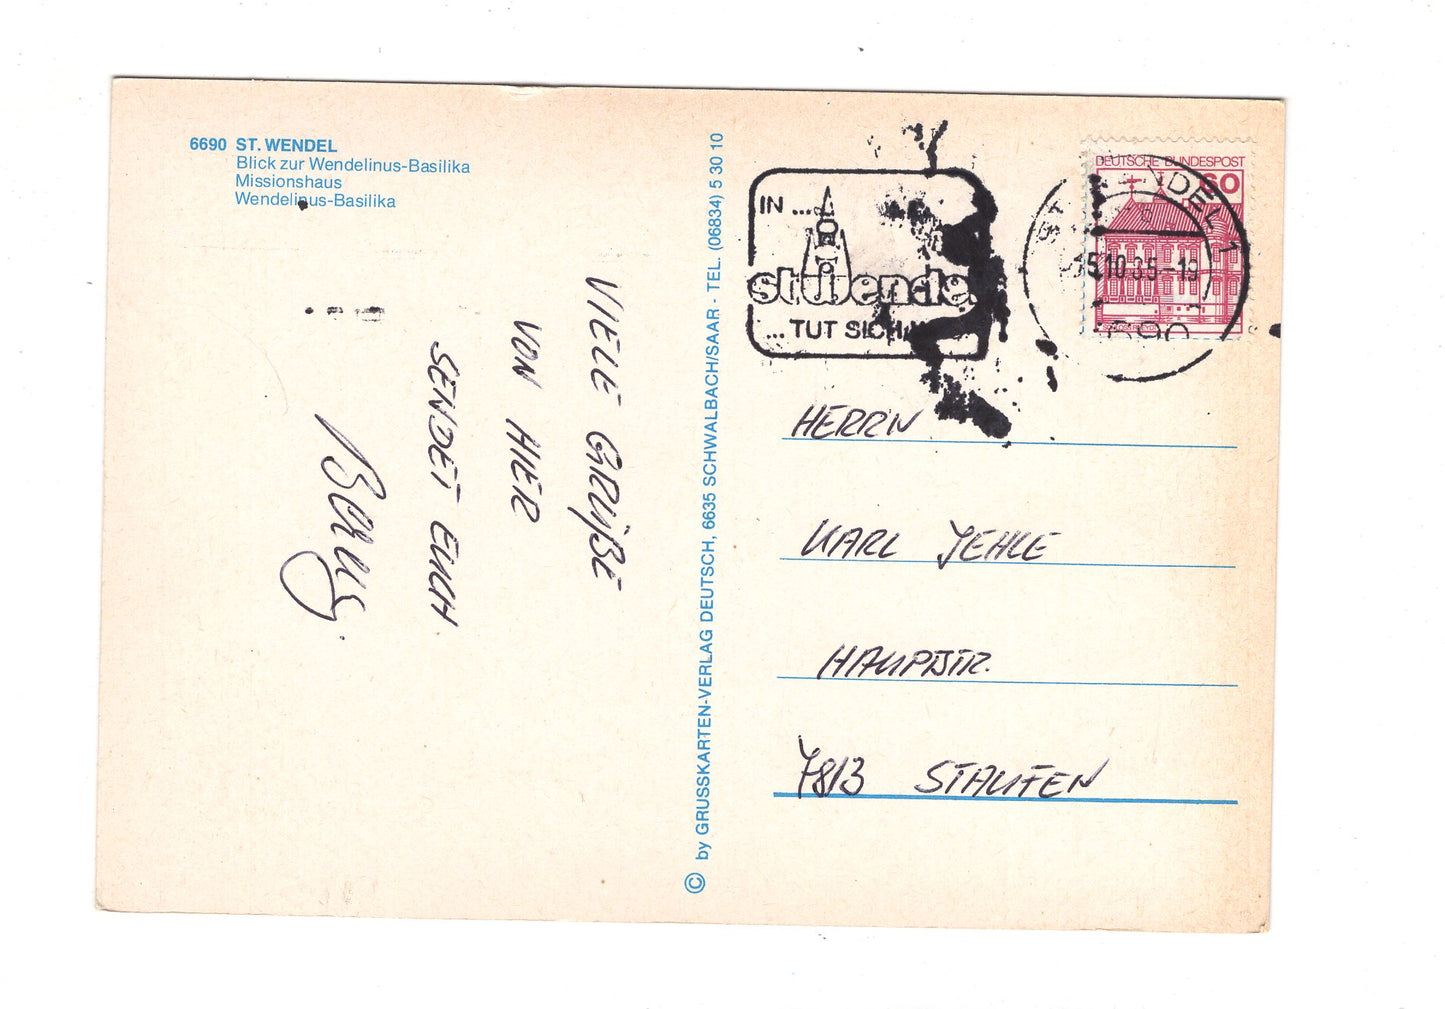 6690 ST. WENDEL
Blick zur Wendelinus-Basilika
Missionshaus
Wendelinus-Basilika
VIELE GRÜßE
VON HIER
SENDET EUCH
© by GRUSSKARTEN-VERLAG DEUTSCH, 6635 SCHWALBACH/SAAR - TEL. (06834) 5 30 10
IN ...
st.wendel
... TUT SICH
DEUTSCHE BUNDESPOST
60
HERRN
KARL JEHLE
HAUPTSTR.
7813 STAUFEN